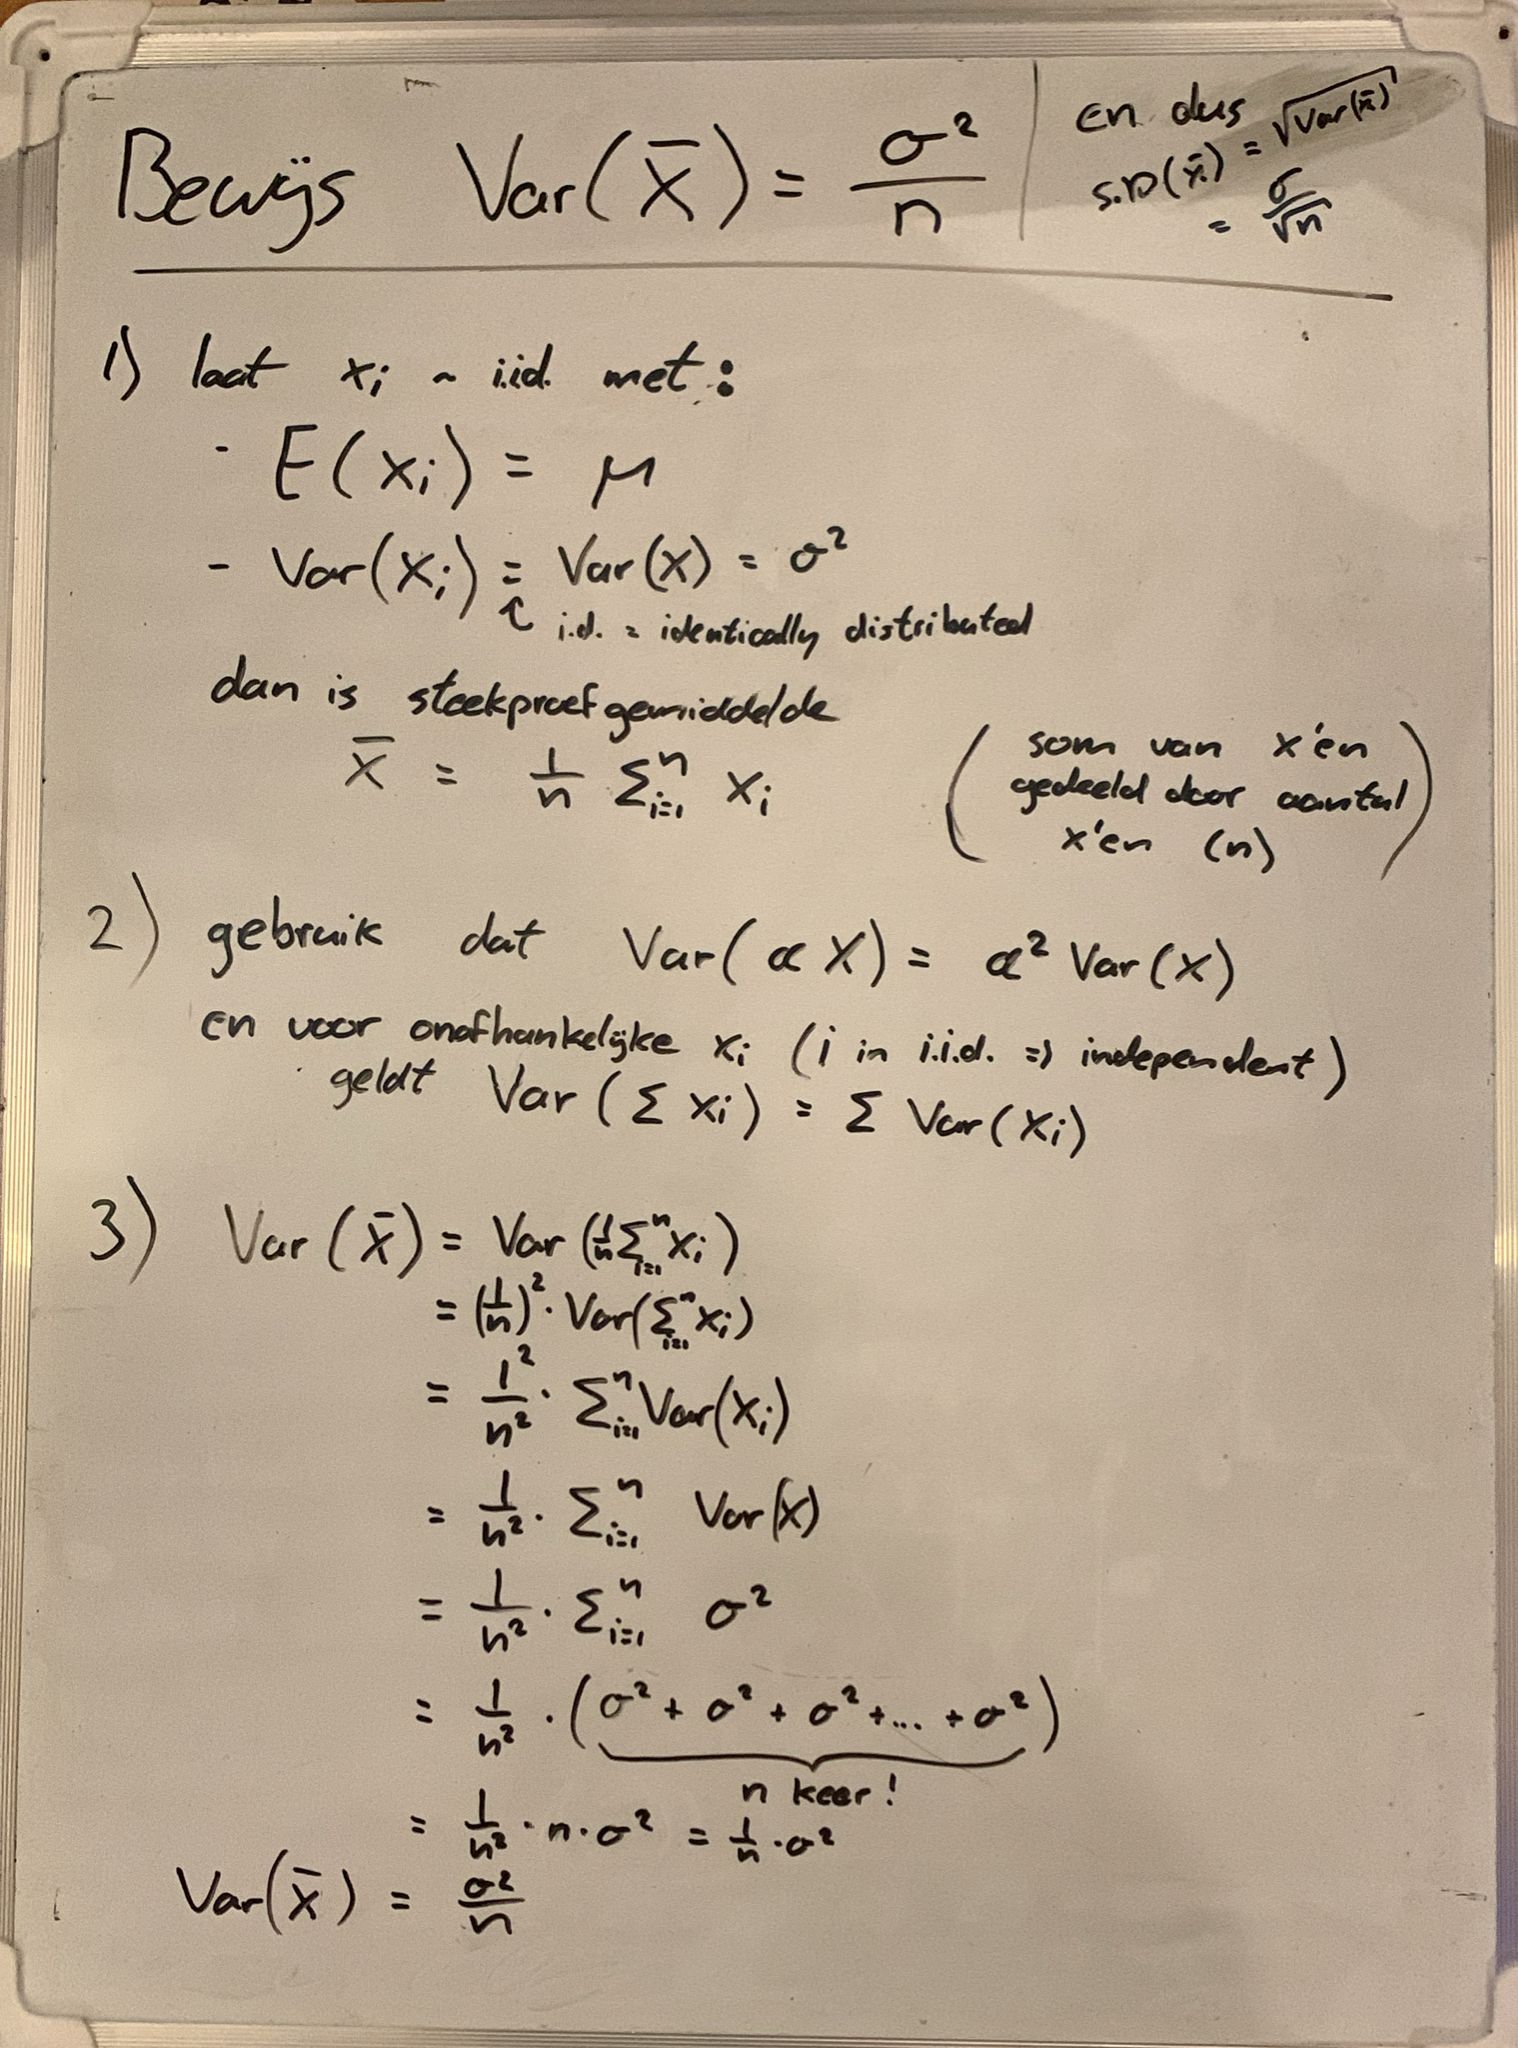 Bewijs Var(X̄) = σ²/n
en dus
S.D(x̄) = √Var(x̄)
= σ/√n
1) laat xi ~ i.i.d. met:
- E(xi) = μ
- Var(xi) = Var(x) = σ²
↑ i.d. = identically distributed
dan is steekproefgemiddelde
x̄ = 1/n Σⁿᵢ₌₁ xi
(som van x'en
gedeeld door aantal
x'en (n))
2) gebruik dat Var(αX) = α² Var(x)
en voor onafhankelijke xi (i in i.i.d. => independent)
geldt Var(Σ xi) = Σ Var(xi)
3) Var(x̄) = Var(1/n Σⁿᵢ₌₁ xi)
= (1/n)² · Var(Σⁿᵢ₌₁ xi)
= 1²/n² · Σⁿᵢ₌₁ Var(xi)
= 1/n² · Σⁿᵢ₌₁ Var(x)
= 1/n² · Σⁿᵢ₌₁ σ²
= 1/n² · (σ² + σ² + σ² + ... + σ²)
n keer!
= 1/n² · n · σ² = 1/n · σ²
Var(x̄) = σ²/n